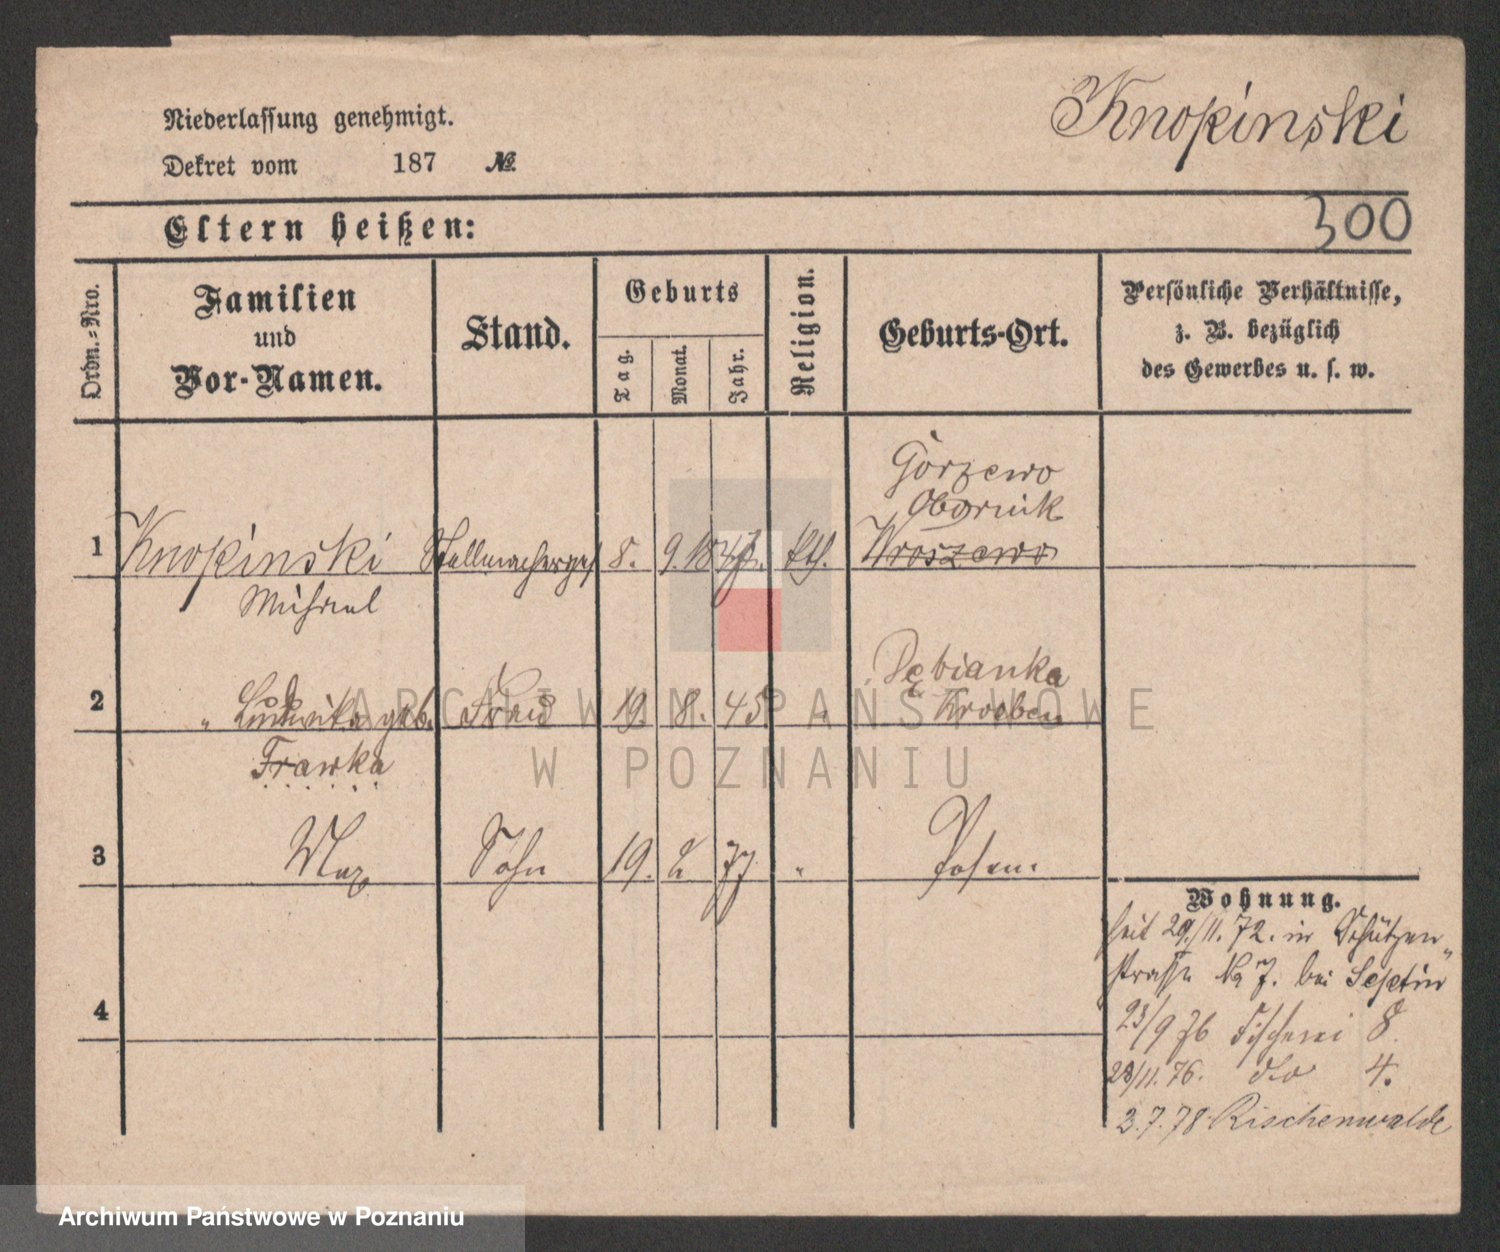 Niederlassung genehmigt.
Knopinski
Dekret vom 187 №.
300
Eltern heißen:
Ordn.-Nro.
Familien
und
Vor-Namen.
Stand.
Geburts
Tag.
Monat.
Jahr.
Religion.
Geburts-Ort.
Persönliche Verhältnisse,
z. B. bezüglich
des Gewerbes u. s. w.
Górzewo
Obornik
1 Knopinski Stellmacherges 8. 9. 1847. kth. Wroszewo
Michael
Dębianka
2 " Ludwika geb. Frau 19 8. 45 " Kroeben
Frawka
3 Max Sohn 19. 2 77 " Posen.
Wohnung.
seit 29/11. 72. in Schützen-
strasse № 7. bei
4
23/9 76 Fischerei 8.
28/11. 76. dto 4.
2.7.78 Rischenwalde
ARCHIWUM PAŃSTWOWE
W POZNANIU
Archiwum Państwowe w Poznaniu